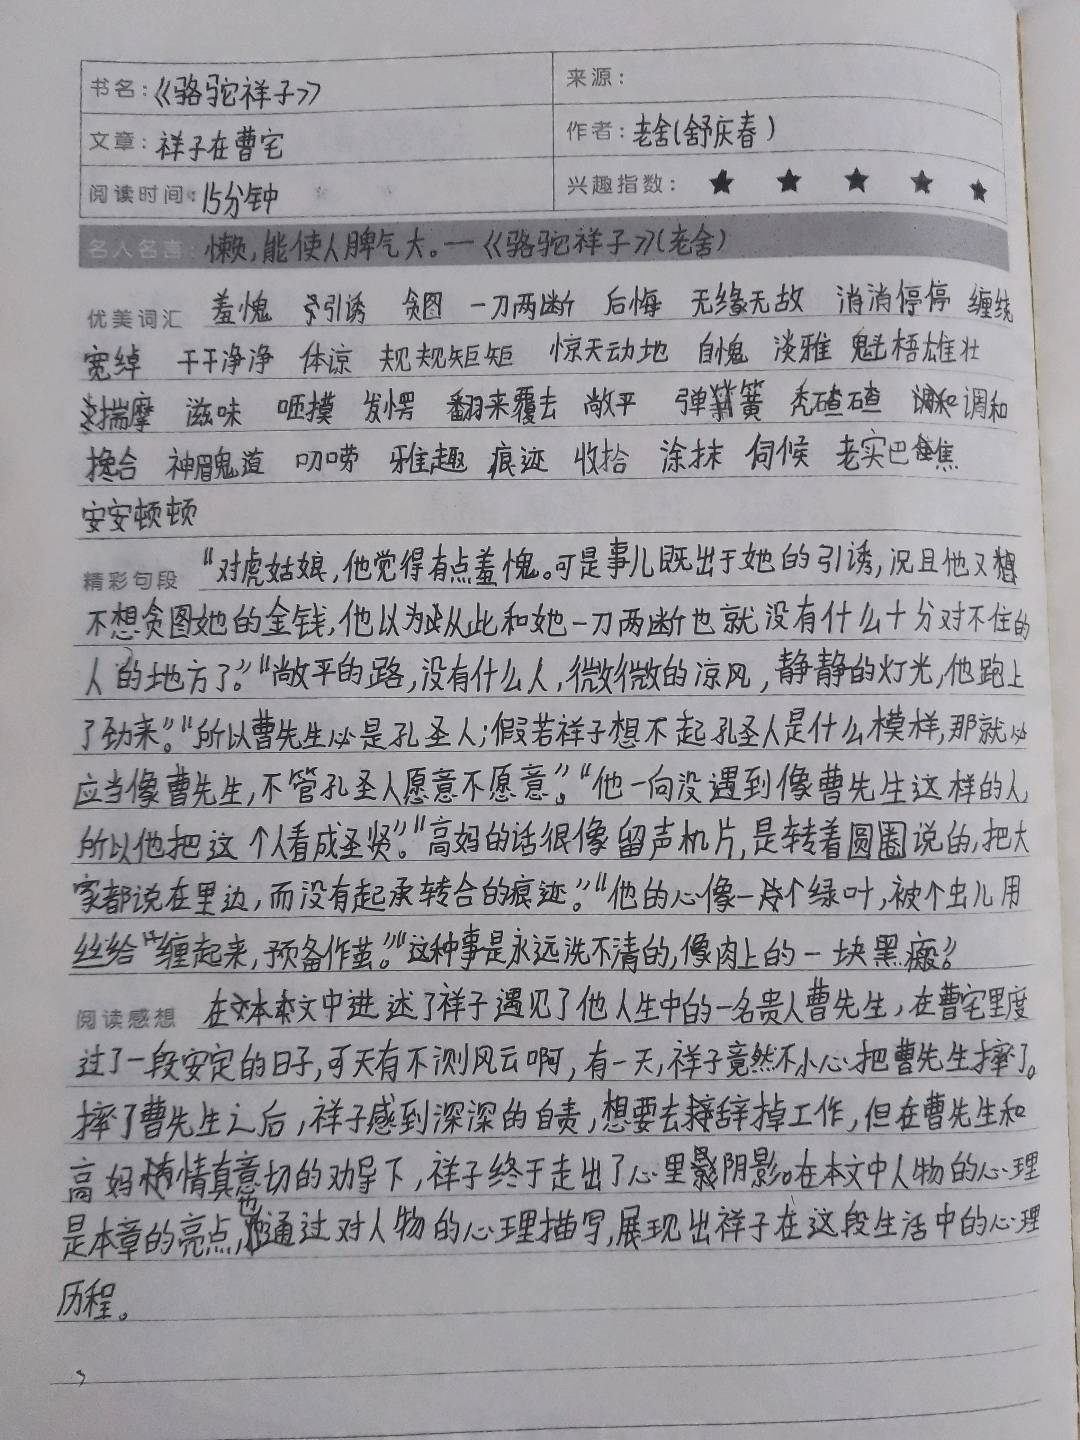 书名:《骆驼祥子》 来源:
文章:祥子在曹宅 作者:老舍(舒庆春)
阅读时间:15分钟 兴趣指数:★ ★ ★ ★ ★
名人名言:懒,能使人脾气大。—《骆驼祥子》(老舍)
优美词汇 羞愧 引诱 贪图 一刀两断 后悔 无缘无故 消消停停 缠绕
宽绰 干干净净 体谅 规规矩矩 惊天动地 自愧 淡雅 魁梧雄壮
揣摩 滋味 咂摸 发愣 翻来覆去 敞平 弹簧 秃碴碴 调和
搀合 神眉鬼道 叨唠 雅趣 痕迹 收拾 涂抹 伺候 老实巴焦
安安顿顿
精彩句段 “对虎姑娘,他觉得有点羞愧。可是事儿既出于她的引诱,况且他又
不想贪图她的金钱,他以为从此和她一刀两断也就没有什么十分对不住的
人的地方了。”“敞平的路,没有什么人,微微的凉风,静静的灯光,他跑上
了劲来”。“所以曹先生必是孔圣人;假若祥子想不起孔圣人是什么模样,那就必
应当像曹先生,不管孔圣人愿意不愿意”。“他一向没遇到像曹先生这样的人,
所以他把这个人看成圣贤”。“高妈的话很像留声机片,是转着圆圈说的,把大
家都说在里边,而没有起承转合的痕迹。”“他的心像一个绿叶,被个虫儿用
丝给缠起来,预备作茧。”“这种事是永远洗不清的,像肉上的一块黑瘢”。
阅读感想 在本文中进述了祥子遇见了他人生中的一名贵人曹先生,在曹宅里度
过了一段安定的日子,可天有不测风云啊,有一天,祥子竟然不小心把曹先生摔了。
摔了曹先生之后,祥子感到深深的自责,想要去辞掉工作,但在曹先生和
高妈情真意切的劝导下,祥子终于走出了心里阴影。在本文中人物的心理
是本章的亮点,也通过对人物的心理描写,展现出祥子在这段生活中的心理
历程。